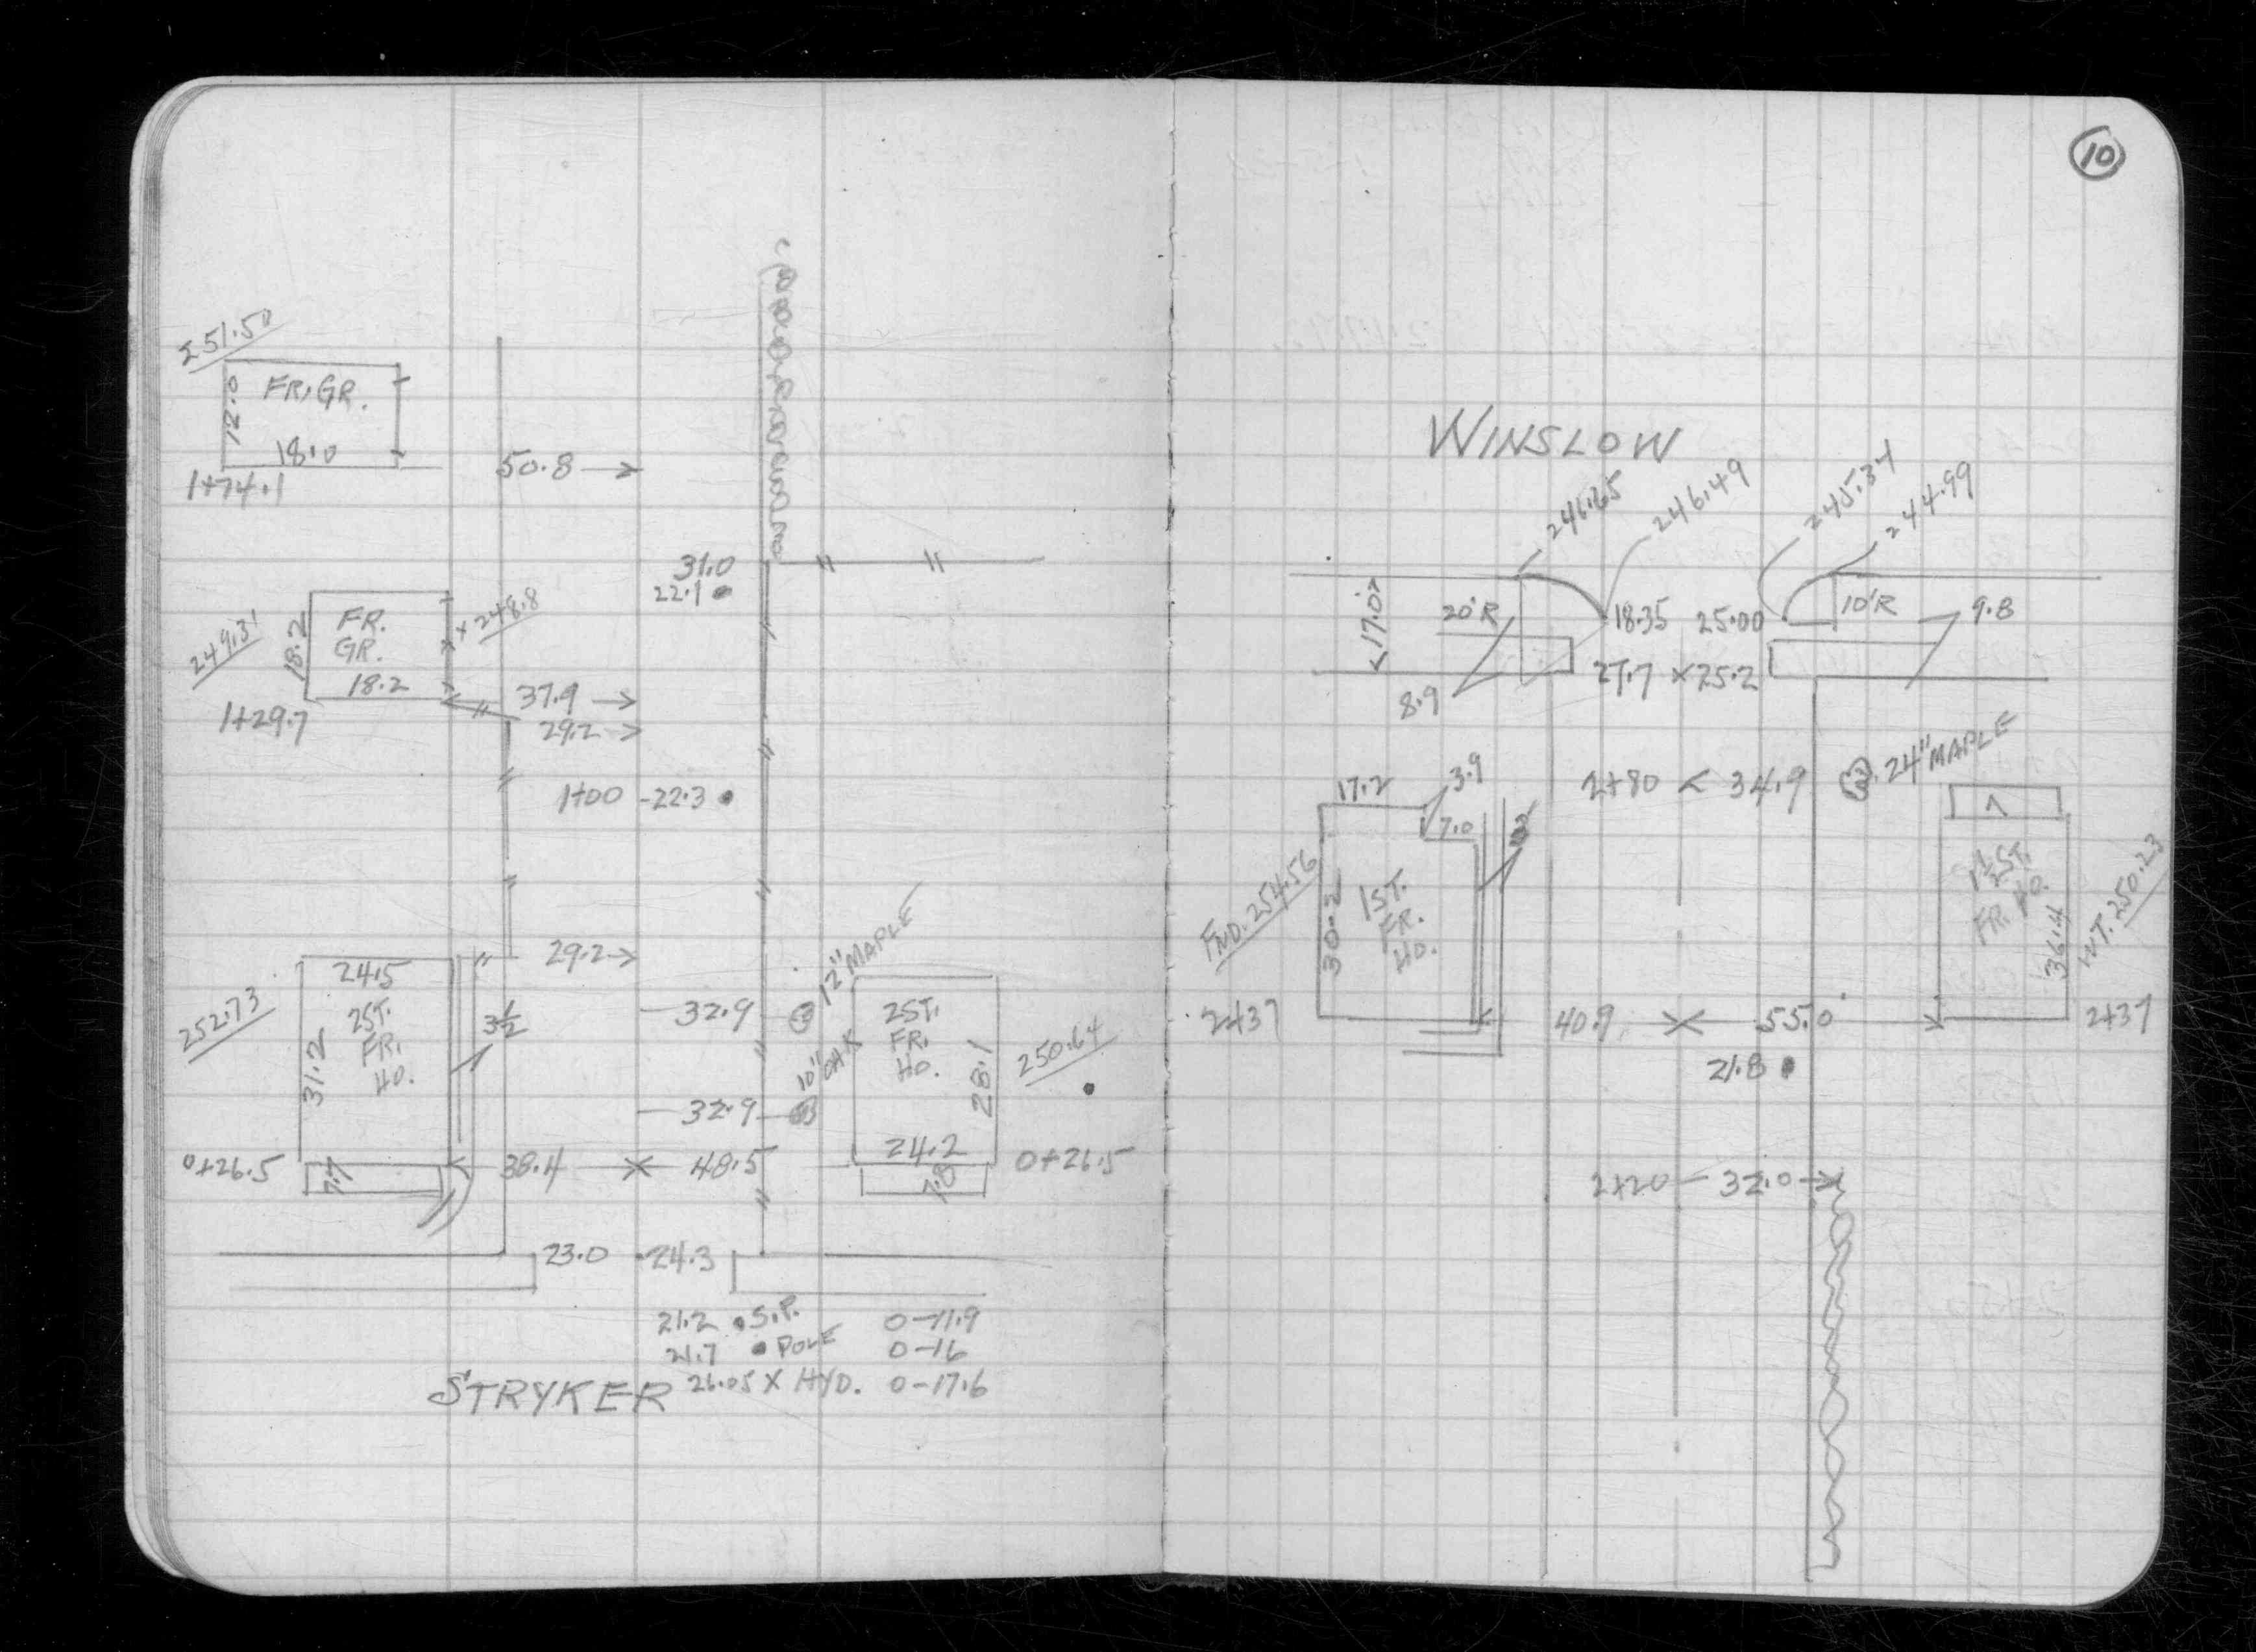 251.50
FR. GR.
12.0
18.0
1+74.1
50.8
31.0
22.1
249.31
18.2
FR.
GR.
18.2
× 248.8
1+29.7
37.9
29.2
1+00 -22.3
29.2
252.73
24.5
2ST.
FR.
HO.
31.2
3½
32.9
12" MAPLE
10" OAK
32.9
2ST.
FR.
HO.
28.1
24.2
250.64
0+26.5
7.7
38.4 × 48.5
7.8
0+26.5
23.0 24.3
21.2 S.P. 0-11.9
21.7 POLE 0-16
STRYKER 26.05 × HYD. 0-17.6
10
WINSLOW
246.65
246.49
245.34
244.99
17.0
20'R
18.35 25.00
10'R
9.8
27.7 × 25.2
8.9
17.2
3.9
7.0
2+80 < 34.9
24" MAPLE
7
FND. 254.56
30.2
1ST.
FR.
HO.
1½ST.
FR. HO.
36.4
WT. 250.23
2+37
40.9 × 55.0
2+37
21.8
2+20 - 32.0